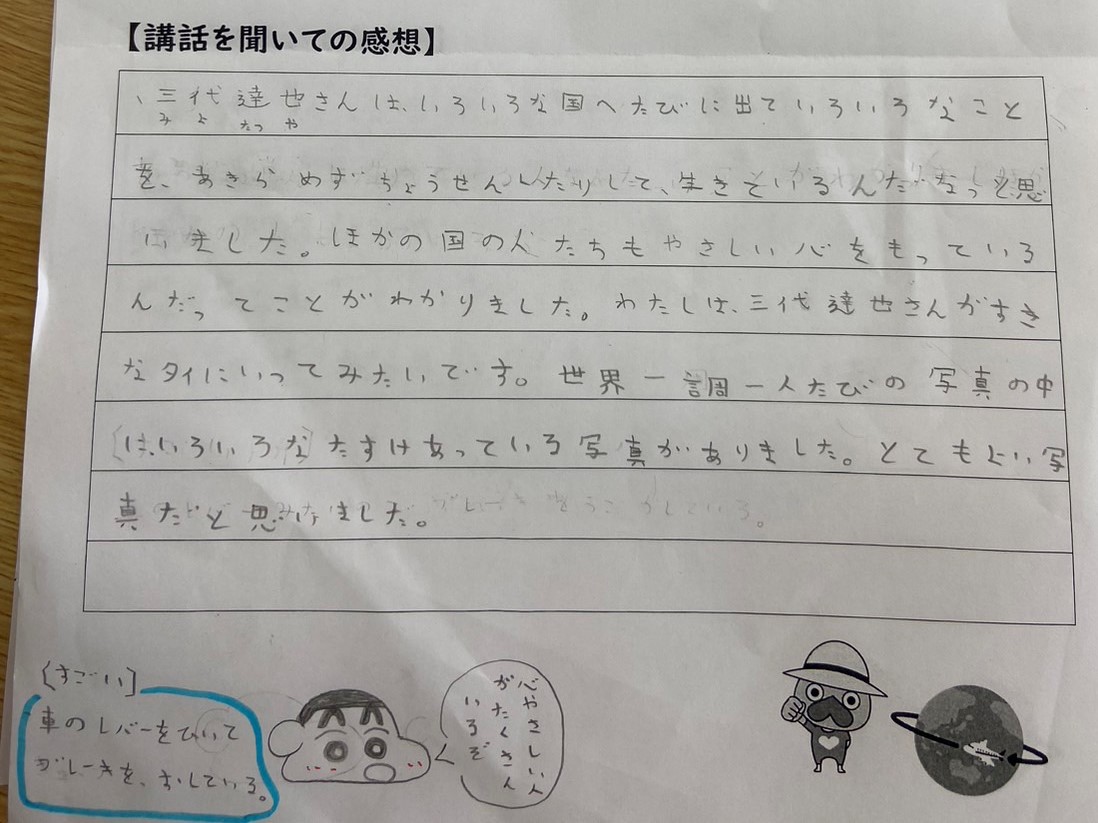 【講話を聞いての感想】
、三代達也さんは、いろいろな国へたびに出ていろいろなこと
みよ たつ や
を、あきらめずちょうせんしたりして、生きているんだなっと思
いました。ほかの国の人たちもやさしい心をもっている
んだってことがわかりました。わたしは、三代達也さんがすき
なタイにいってみたいです。世界一調一人たびの写真の中
〔は、いろいろな〕たすけあっている写真がありました。とてもよい写
真だと思いました。
〔すごい〕
車のレバーをひいて
ブレーキを、おしている。
心やさしい人
がたくさん
いるぞ